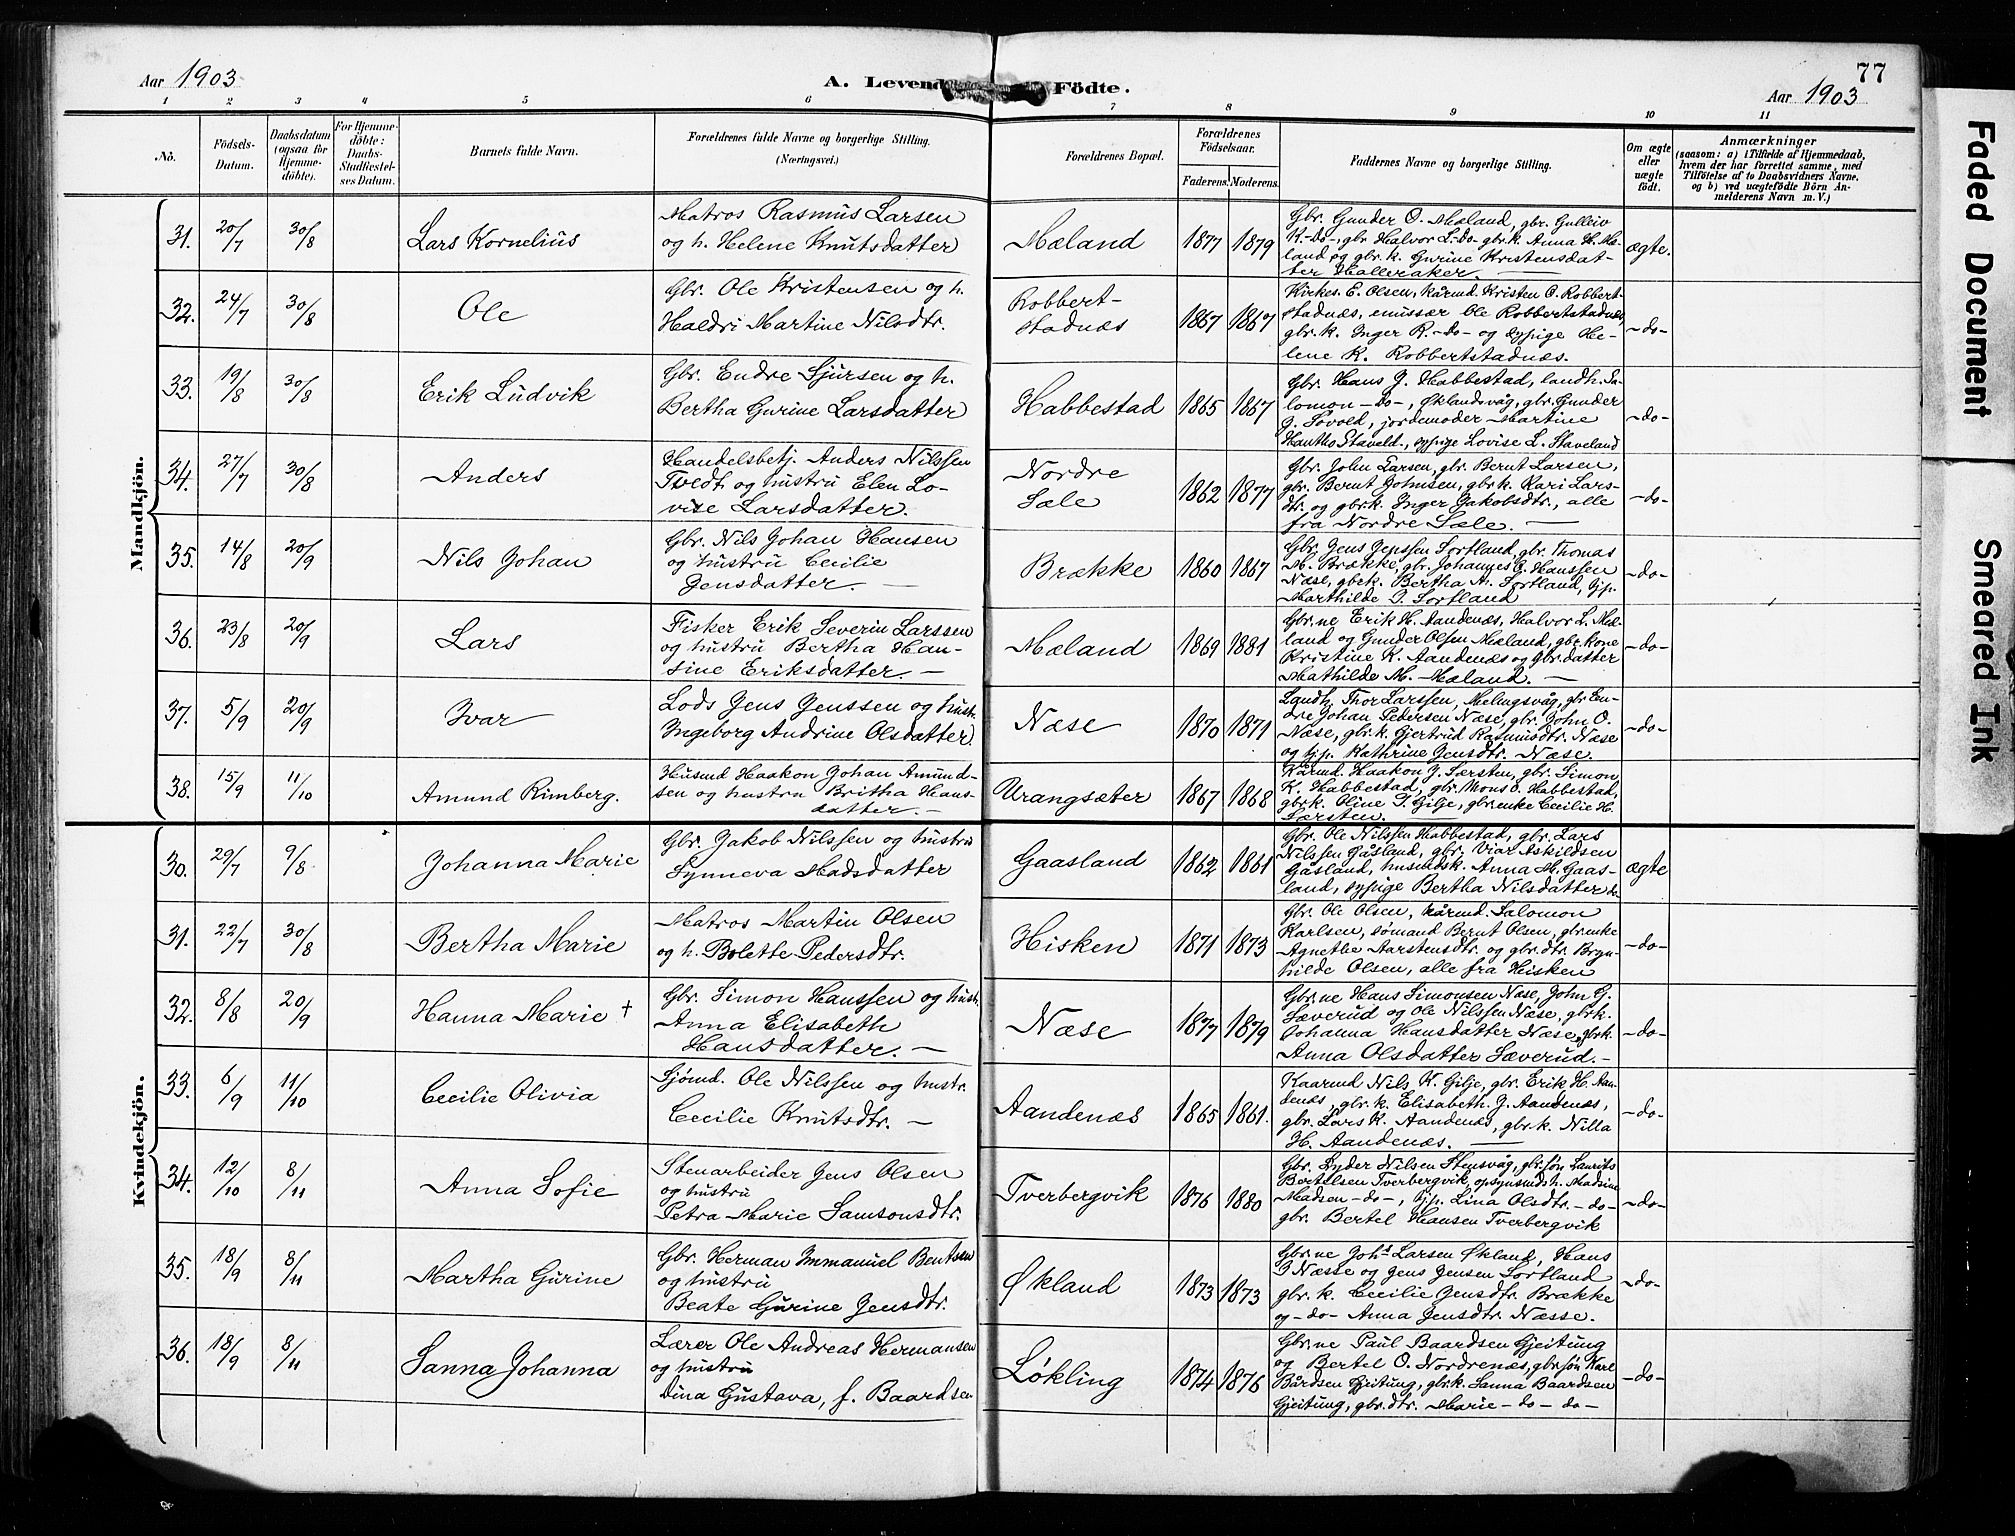 Aar 1903
A. Levend Födte.
77
Aar 1903
1 2 3 4 5 6 7 8 9 10 11
No.
Födsels-
Datum.
Daabsdatum
(ogsaa for
Hjemme-
döbte).
For Hjemme-
döbte:
Daabs-
Stadfæstel-
ses Datum.
Barnets fulde Navn.
Forældrenes fulde Navne og borgerlige Stilling.
(Næringsvei.)
Forældrenes Bopæl.
Forældrenes
Födselsaar.
Faderens. Moderens.
Faddernes Navne og borgerlige Stilling.
Om ægte
eller
uægte
födt.
Anmærkninger
(saasom: a) i Tilfælde af Hjemmedaab,
hvem der har forrettet samme, med
Tilföielse af to Daabsvidners Navne,
og b) ved uægtefödte Börn An-
melderens Navn m. V.)
Mandkjön.
31. 20/7 30/8 Lars Kornelius
Matros Rasmus Larsen
og h. Helene Knutsdatter
Mæland 1877 1879
Gbr. Gunder O. Mæland, gbr. Gulleiv
K. -do-, gbr Halvor L. -do- gbr.k. Anna H. Mæ-
land og gbr. k. Gurine Kristensdat-
ter Halleraker.
ægte.
32. 24/7 30/8 Ole
Gbr. Ole Kristensen og h.
Haldri Martine Nilsdtr.
Robbert-
stadnæs 1867 1867
Kirkes. E. Olsen, kårmd. Kristen O. Robbert-
stadnæs, emissær Ole Robbertstadnæs,
gbr. k. Inger K. -do- og sypige He-
lene K. Robbertstadnæs.
-do-
33. 19/8 30/8 Erik Ludvik
Gbr. Endre Sjursen og h.
Bertha Gurine Larsdatter
Habbestad 1865 1867
Gbr. Hans J. Habbestad, landh. Sa-
lomon -do-, Øklandsvåg, gbr. Gunder
G. Sovold, jordemoder Martine
sypige Lovise L. Staveland
-do-
34. 27/7 30/8 Anders
Handelsbetj. Anders Nilssen
Tvedt og hustru Elen Lo-
vise Larsdatter.
Nordre
Sæle 1862 1877
Gbr. John Larsen, gbr. Bernt Larsen,
gbr. Bernt Johnsen, gbr.k. Kari Lars-
dtr. og gbr.k. Inger Jakobsdtr., alle
fra Nordre Sæle.
-do-
35. 14/8 20/9 Nils Johan
Gbr. Nils Johan Hansen
og hustru Cecilie
Jensdatter.
Brække 1860 1867
Gbr. Jens Jenssen Sortland, gbr. Thomas
M. Brække, gbr. Johannes G. Hanssen
Næse, gbr.k. Bertha A. Sortland, tjp.
Marthilde J. Sortland
-do-
36. 23/8 20/9 Lars
Fisker Erik Severin Larssen
og hustru Bertha Han-
sine Eriksdatter.
Mæland 1869 1881
Gbr.ne Erik H. Aandenæs, Halvor L. Mæ-
land og Gunder Olsen Mæland, gbr. kone
Kristine K. Aandenæs og gbr. datter
Mathilde M. Mæland.
-do-
37. 5/9 20/9 Ivar
Lods Jens Jenssen og hust.
Ingeborg Andrine Olsdatter
Næse 1870 1871
Landh. Thor Larssen, Melingsvåg, gbr. En-
dre Johan Pedersen Næse, gbr. John O.
Næse, gbr.k. Gjertrud Rasmusdtr. Næse
og tjp. Kathrine Jensdtr. Næse.
-do-
38. 15/9 11/10 Amund Rimberg.
Husmd Haakon Johan Amund-
sen og hustru Britha Hans-
datter.
Vrangsæter 1867 1868
Kårmd. Haakon J. Særsten, gbr. Simon
K. Habbestad, gbr. Mons O. Habbestad,
gbr.k. Oline T. Gilje, gbr. enke Cecilie H.
Særsten.
Kvindekjön.
30. 29/7 9/8 Johanna Marie
Gbr. Jakob Nilssen og hustru
Synneva Madsdatter
Gaasland 1862 1861
Gbr. Ole Nilssen Habbestad, gbr. Lars
Nilssen Gåsland, gbr. Viar Askildsen
Gåsland, husmdsk. Anna M. Gaas-
land, sypige Bertha Nilsdatter do
ægte
31. 22/7 30/8 Bertha Marie
Matros Martin Olsen
og h. Bolette Pedersdtr.
Hisken 1871 1873
Gbr. Ole Olsen, kårmd. Salomon
Karlsen, sømand Bernt Olsen, gbr. enke
Agnethe Aarstensdtr. og gbr. dtr. Bryn-
hilde Olsen, alle fra Hisken
-do-
32. 8/8 20/9 Hanna Marie +
Gbr. Simon Hanssen og hust.
Anna Elisabeth
Hansdatter.
Næse 1877 1879
Gbr.ne Hans Simonsen Næse, John G.
Sæverud og Ole Nilssen Næse, gbr.k.
Johanna Hansdatter Næse, gbr.k.
Anna Olsdatter Sæverud.
-do-
33. 6/9 11/10 Cecilie Olivia
Sjømd. Ole Nilssen og hustr.
Cecilie Knutsdtr.
Aandenæs 1865 1861.
Kaarmd Nils K. Gilje, gbr. Erik H. Aan-
denæs, gbr. k. Elisabeth J. Aandenæs,
gbr. Lars K. Aandenæs, gbr. k. Nilla
H. Aandenæs.
-do-
34. 12/10 8/11 Anna Sofie
Stenarbeider Jens Olsen
og hustru
Petra Marie Samsonsdtr.
Tverbergvik 1876 1880
Gbr. Lyder Nilsen Stensvåg, gbr. søn Laurits
Bertelsen Tverbergvik, opsynsmds h. Madsine
Madsen -do-, tjp. Lina Olsdtr. -do-
gbr. Bertel Hansen Tverbergvik
-do-
35. 18/9 8/11 Martha Gurine
Gbr. Herman Immanuel Bentsen
og hustru
Beate Gurine Jensdtr.
Økland 1873 1873
Gbr.ne Johs Larsen Økland, Hans
J Næsse og Jens Jensen Sortland
gbr. k. Cecilie Jensdtr. Brække
og -do- Anna Jensdtr. Næsse.
-do-
36. 18/9 8/11 Sanna Johanna
Lærer Ole Andreas Hermansen
og hustru
Dina Gustava, f. Baardsen
Løkling 1874 1876
Gbr.ne Paul Baardsen Gjeitung
og Bertel O. Nordrenæs, gbr. søn Karl
Bårdsen Gjeitung, gbr.k. Sanna Baardsen
Gjeitung, gbr. dtr. Marie -do- do-
-do-
Faded Document
Smeared Ink